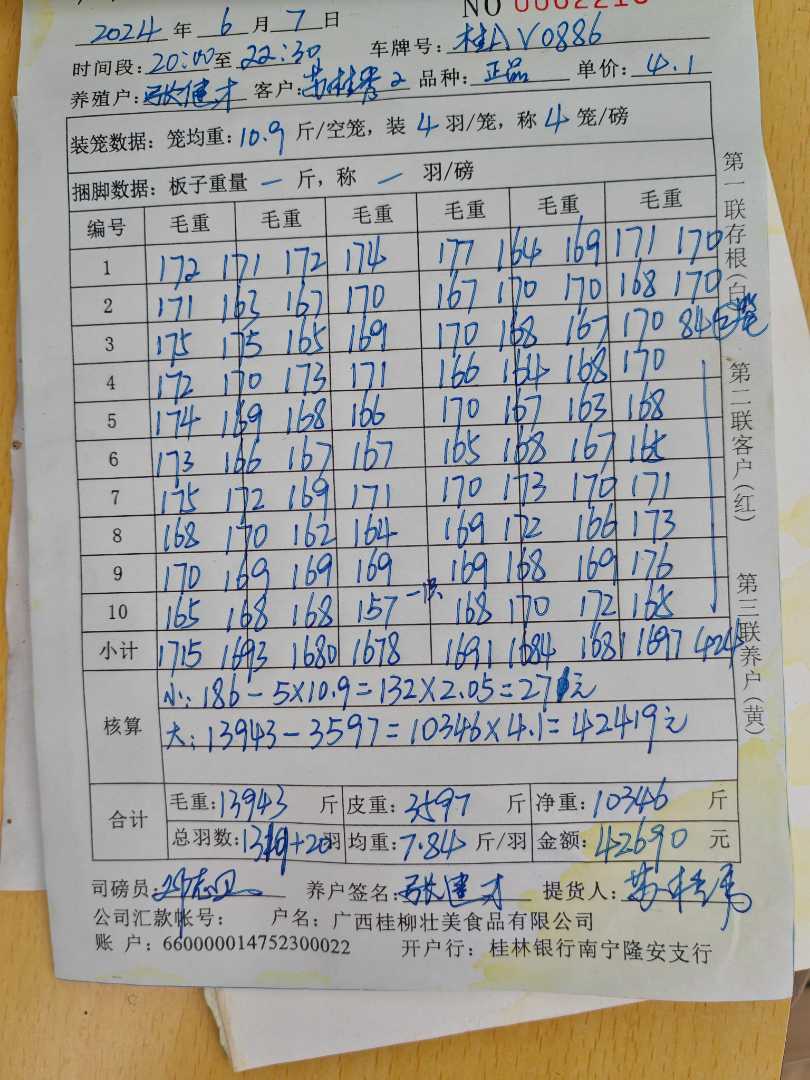 NO 0002210
2024 年 6 月 7 日
时间段: 20:00 至 22:30 车牌号: 桂AV0886
养殖户: 张健才 客户: 苏桂秀2 品种: 正品 单价: 4.1
装笼数据: 笼均重: 10.9 斤/空笼, 装 4 羽/笼, 称 4 笼/磅
捆脚数据: 板子重量 一 斤, 称 一 羽/磅
编号 毛重 毛重 毛重 毛重 毛重 毛重
1 172 171 172 174 177 164 169 171 170
2 171 163 167 170 167 170 170 168 170
3 175 175 165 169 170 168 167 170 84
4 172 170 173 171 166 164 168 170
5 174 169 168 166 170 167 163 168
6 173 166 167 167 165 168 167 165
7 175 172 169 171 170 173 170 171
8 168 170 162 164 169 172 166 173
9 170 169 169 169 169 168 169 176
10 165 168 168 157 168 170 172 165
小计 1715 1693 1680 1678 1691 1684 1681 1697 424
核算
小: 186-5×10.9=132×2.05=271元
大: 13943-3597=10346×4.1=42419元
合计 毛重: 13943 斤 皮重: 3597 斤 净重: 10346 斤
总羽数: 1319+20 羽 均重: 7.84 斤/羽 金额: 42690 元
司磅员: 养户签名: 张健才 提货人:
公司汇款帐号: 户名: 广西桂柳壮美食品有限公司
账 户: 660000014752300022 开户行: 桂林银行南宁隆安支行
第一联存根(白)
第二联客户(红)
第三联养户(黄)